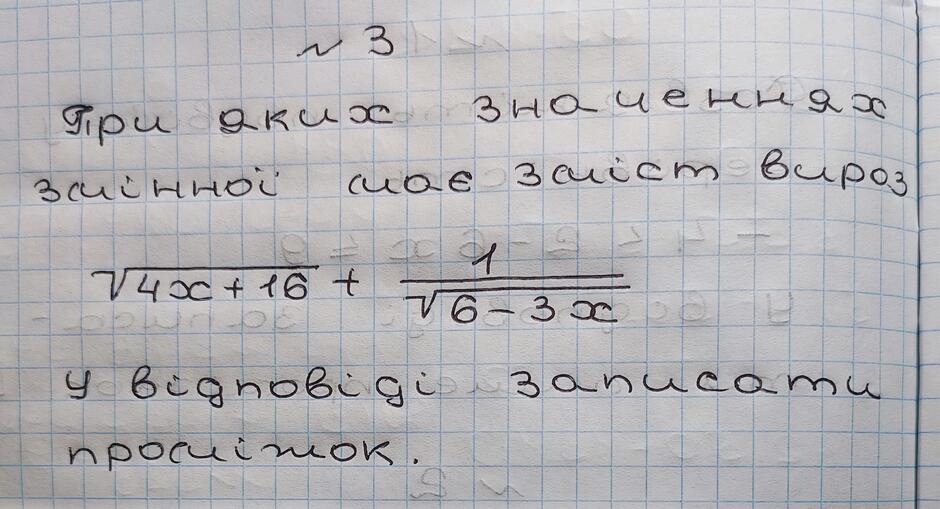 № 3
При яких значеннях
змінної має зміст вираз
√4x+16 + 1/√6-3x
У відповіді записати
проміжок.